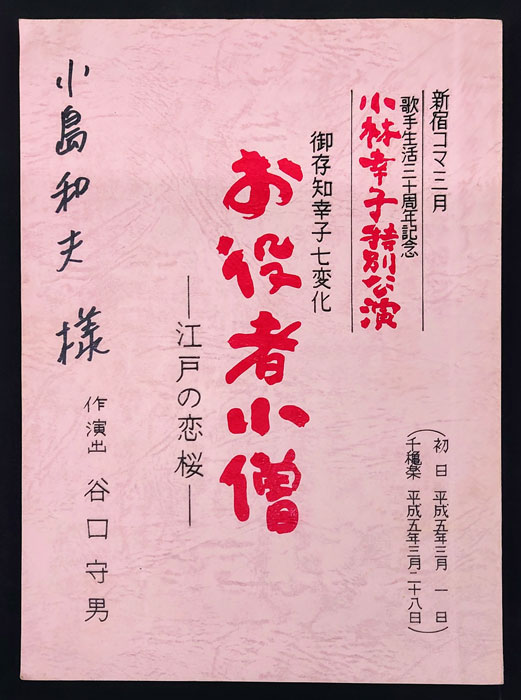 新宿コマ三月
歌手生活三十周年記念
小林幸子特別公演
初日 平成五年三月 一日
千穐楽 平成五年三月二十八日
御存知幸子七変化
お役者小僧
―江戸の恋桜―
作演出 谷口守男
小島和夫 様